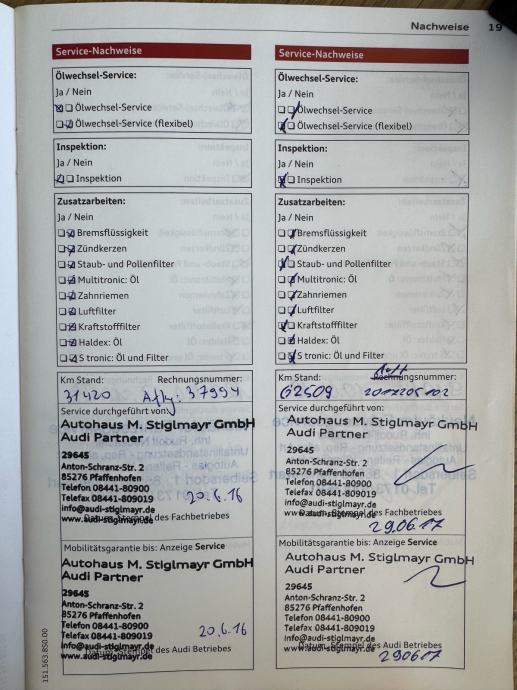 Nachweise 19
Service-Nachweise
Ölwechsel-Service:
Ja / Nein
Ölwechsel-Service
Ölwechsel-Service (flexibel)
Inspektion:
Ja / Nein
Inspektion
Zusatzarbeiten:
Ja / Nein
Bremsflüssigkeit
Zündkerzen
Staub- und Pollenfilter
Multitronic: Öl
Zahnriemen
Luftfilter
Kraftstofffilter
Haldex: Öl
S tronic: Öl und Filter
Km Stand: Rechnungsnummer:
31420 37994
Service durchgeführt von:
Autohaus M. Stiglmayr GmbH
Audi Partner
29645
Anton-Schranz-Str. 2
85276 Pfaffenhofen
Telefon 08441-80900
Telefax 08441-809019
info@audi-stiglmayr.de
www.audi-stiglmayr.de
20.6.16
Datum, Stempel des Fachbetriebes
Mobilitätsgarantie bis: Anzeige Service
Autohaus M. Stiglmayr GmbH
Audi Partner
29645
Anton-Schranz-Str. 2
85276 Pfaffenhofen
Telefon 08441-80900
Telefax 08441-809019
info@audi-stiglmayr.de
www.audi-stiglmayr.de
20.6.16
Datum, Stempel des Audi Betriebes
Service-Nachweise
Ölwechsel-Service:
Ja / Nein
Ölwechsel-Service
Ölwechsel-Service (flexibel)
Inspektion:
Ja / Nein
Inspektion
Zusatzarbeiten:
Ja / Nein
Bremsflüssigkeit
Zündkerzen
Staub- und Pollenfilter
Multitronic: Öl
Zahnriemen
Luftfilter
Kraftstofffilter
Haldex: Öl
S tronic: Öl und Filter
Km Stand: Rechnungsnummer:
62509
Service durchgeführt von:
Autohaus M. Stiglmayr GmbH
Audi Partner
29645
Anton-Schranz-Str. 2
85276 Pfaffenhofen
Telefon 08441-80900
Telefax 08441-809019
info@audi-stiglmayr.de
www.audi-stiglmayr.de
Datum, Stempel des Fachbetriebes
29.06.17
Mobilitätsgarantie bis: Anzeige Service
Autohaus M. Stiglmayr GmbH
Audi Partner
29645
Anton-Schranz-Str. 2
85276 Pfaffenhofen
Telefon 08441-80900
Telefax 08441-809019
info@audi-stiglmayr.de
www.audi-stiglmayr.de
Datum, Stempel des Audi Betriebes
290617
151.563.850.00